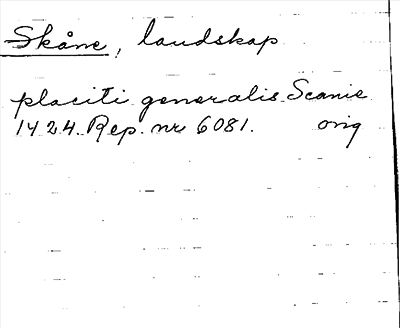 Skåne, landskap
placiti generalis Scanie
1424. Rep. nr 6081. orig